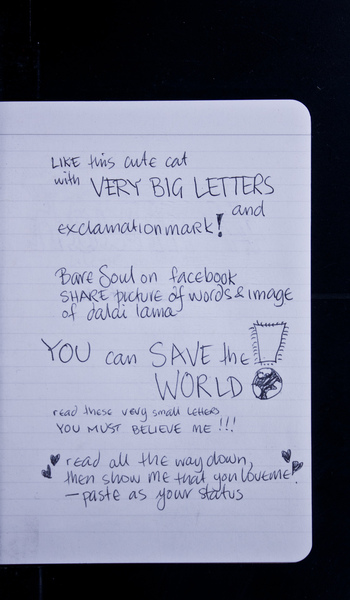 LIKE this cute cat
with VERY BIG LETTERS
and
exclamationmark!
Bare Soul on facebook
SHARE picture of words & image
of dalai lama
YOU can SAVE the
WORLD
read these very small letters
YOU MUST BELIEVE ME !!!
read all the way down,
then show me that you love me!
– paste as your status